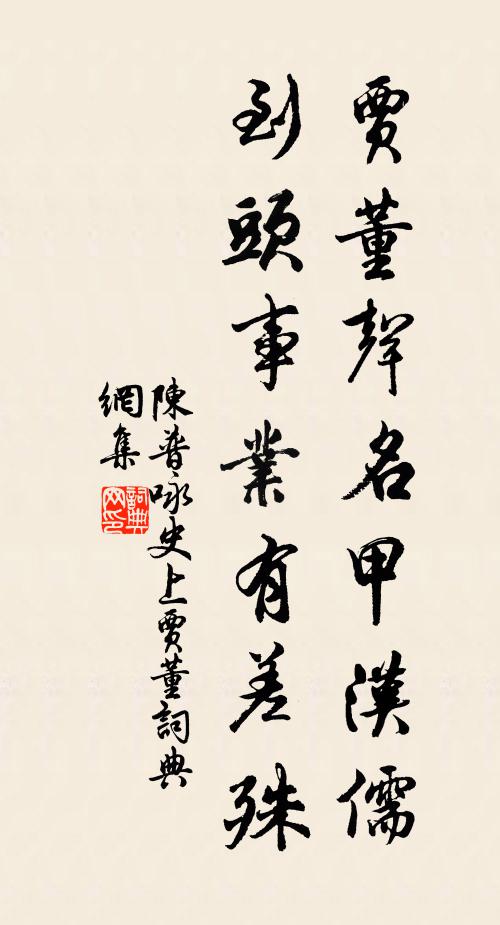 賈董聲名甲漢儒
到頭事業有差殊
陳普咏史上賈董詞典
網集
詞典
网印